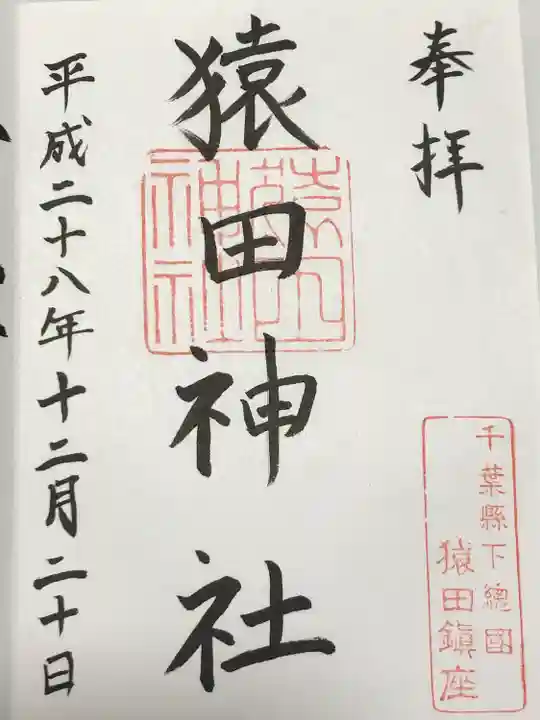 奉拝
千葉縣下總國
猿田鎭座
猿田神社
平成二十八年十二月二十日